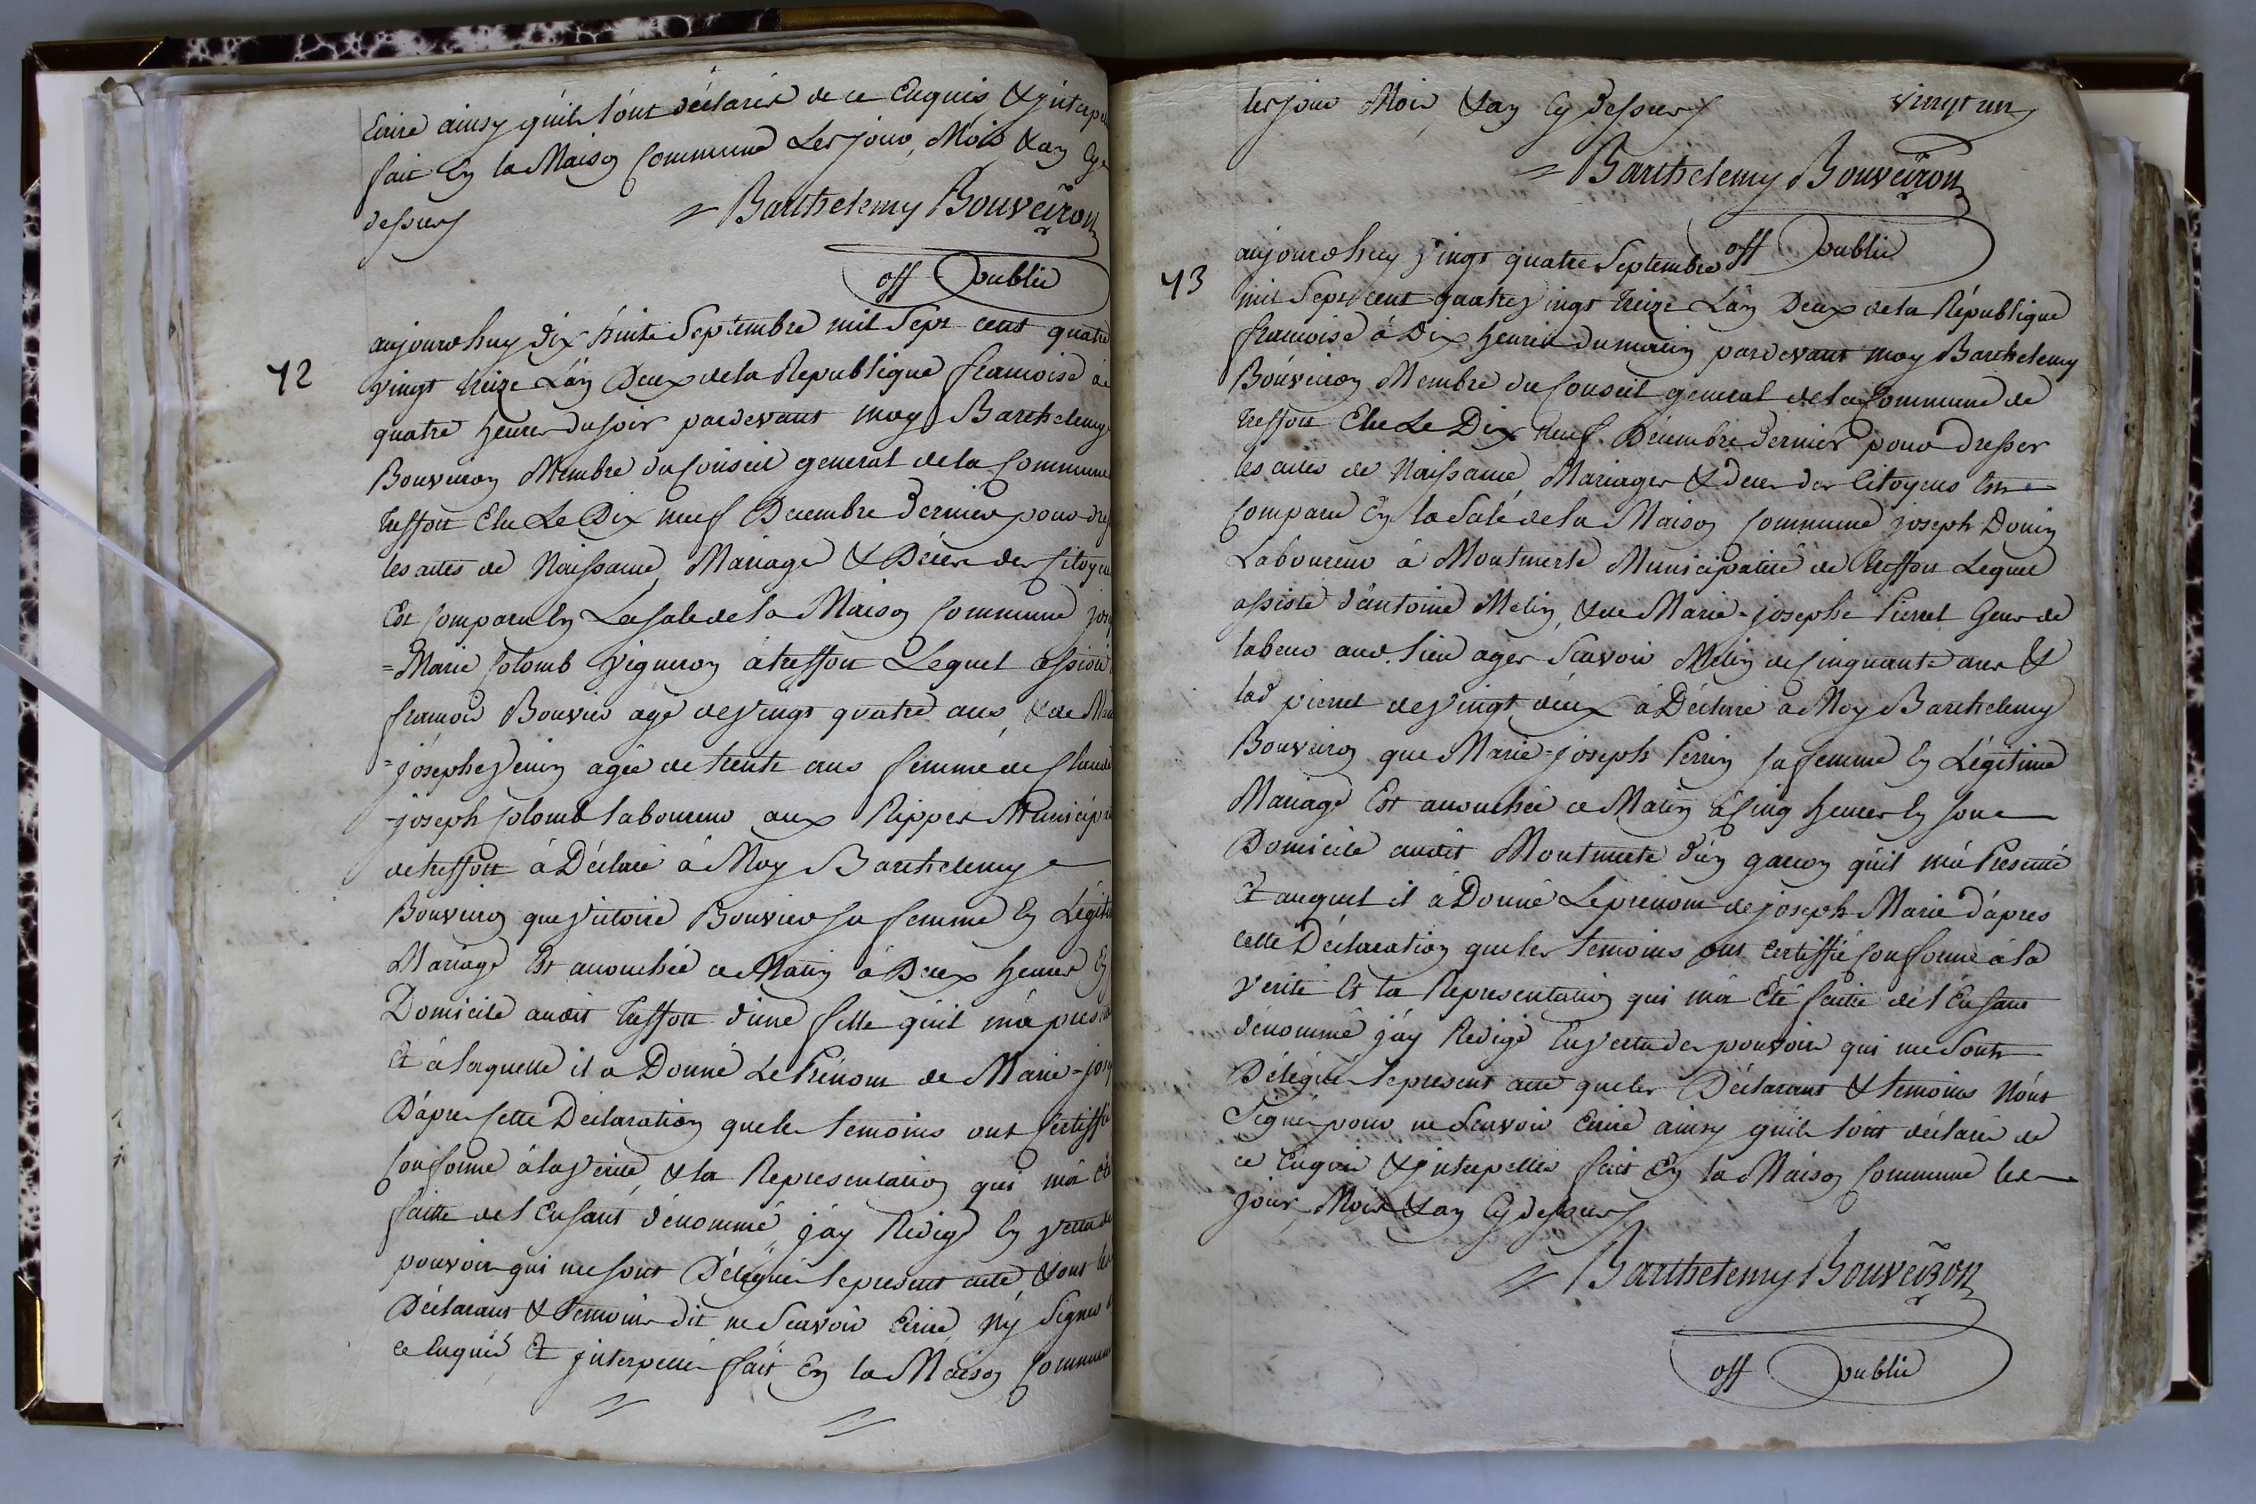 Ecrire ainsy qu'ils l'ont déclarés de ce Enquis & jnterp
fait En la Maison Commune Les jour, Mois & an Cy
dessus
= Barthelemy Bouveiron
off Public
72
aujourdhuy dix huite Septembre mil Sept cent quatre
vingt treize L'an Deux de la Republique francoise à
quatre heures du soir pardevant moy Barthelemy
Bouveiron Membre du Conseil general de la Commune
treffort Elu Le Dix neuf Decembre dernier pour dres
les actes de Naissance, Mariage & Décès des Citoyens
Est Comparu En La sale de la Maison Commune jos
=Marie Colomb Vigneron à treffort Lequel assisté
francois Bouvier agé de vingt quatre ans, & de Ma
=josephe venin agée de trente ans femme de Claude
-joseph Colomb laboureur aux Rippes Municipa
de treffort à Déclaré à Moy Barthelemy
Bouveiron que victoire Bouvier sa femme En Légiti
Mariage Est accouchée ce Matin à Deux heures En
Domicile audit treffort d'une fille qu'il m'a pres
Et à laquelle il a Donné Le Prénom de Marie=jos
D'apres Cette Déclaration que les temoins ont Certiffié
Conforme à la verité, & la Representation qui m'a été
faitte de l'Enfant dénommé, j'ay Redigé En vertu de
pouvoirs qui me sont Délégués le present acte, & ont les
Déclarant & temoins dit ne Scavoir Ecrire, Ny Signer
ce Enquis Et jnterpellés fait En la Maison Commune
les jour Mois & an Cy dessus
vingt un
= Barthelemy Bouveiron
off Public
73
aujourdhuy vingt quatre Septembre
mil Sept cent quatre vingt treize L'an Deux de la République
francoise à Dix heures du matin pardevant moy Barthelemy
Bouveiron Membre du Conseil general de la Commune de
treffort Elu Le Dix neuf Décembre dernier pour dresser
les actes de Naissance, Mariages & deces des Citoyens Est
Comparu En la Sale de la Maison Commune joseph Donin
Laboureur à Montmerle Municipalité de treffort Lequel
assisté d'antoine Melin, & de Marie-josephe Pierrel Gens de
labeur aud. lieu agés Scavoir Melin de Cinquante ans &
lad pierrel de vingt deux à Déclaré à Moy Barthelemy
Bouveiron que Marie=joseph Perrin sa femme En Légitime
Mariage Est accouchée ce Matin à Cinq heures En son
Domicile audit Montmerle d'un garcon qu'il m'a Presenté
Et auquel il à Donné Le prenom de joseph Marie d'apres
cette Déclaration que les temoins ont Certiffié Conforme à la
verité Et la Representation qui m'a Eté faitte de l'Enfant
dénommé j'ay Redigé En vertu des pouvoirs qui me Sont
Délégués le present acte que les Déclarant & temoins N'ont
Signé pour ne Scavoir Ecrire ainsy qu'ils l'ont déclaré de
ce Enquis & jnterpellés fait En la Maison Commune les
jour, Mois & an Cy dessus
= Barthelemy Bouveiron
off Public